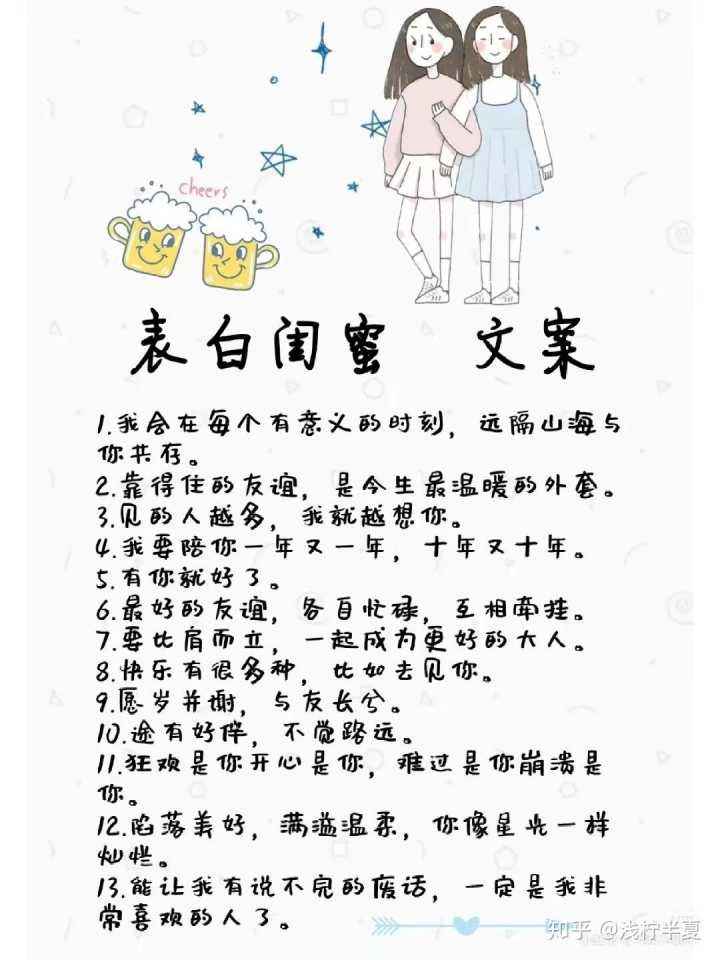 cheers
表白闺蜜 文案
1.我会在每个有意义的时刻，远隔山海与
你共存。
2.靠得住的友谊，是今生最温暖的外套。
3.见的人越多，我就越想你。
4.我要陪你一年又一年，十年又十年。
5.有你就好了。
6.最好的友谊，各自忙碌，互相牵挂。
7.要比肩而立，一起成为更好的大人。
8.快乐有很多种，比如去见你。
9.愿岁并谢，与友长兮。
10.途有好伴，不觉路远。
11.狂欢是你开心是你，难过是你崩溃是
你。
12.陷落美好，满溢温柔，你像星光一样
灿烂。
13.能让我有说不完的废话，一定是我非
常喜欢的人了。
知乎 @浅柠半夏